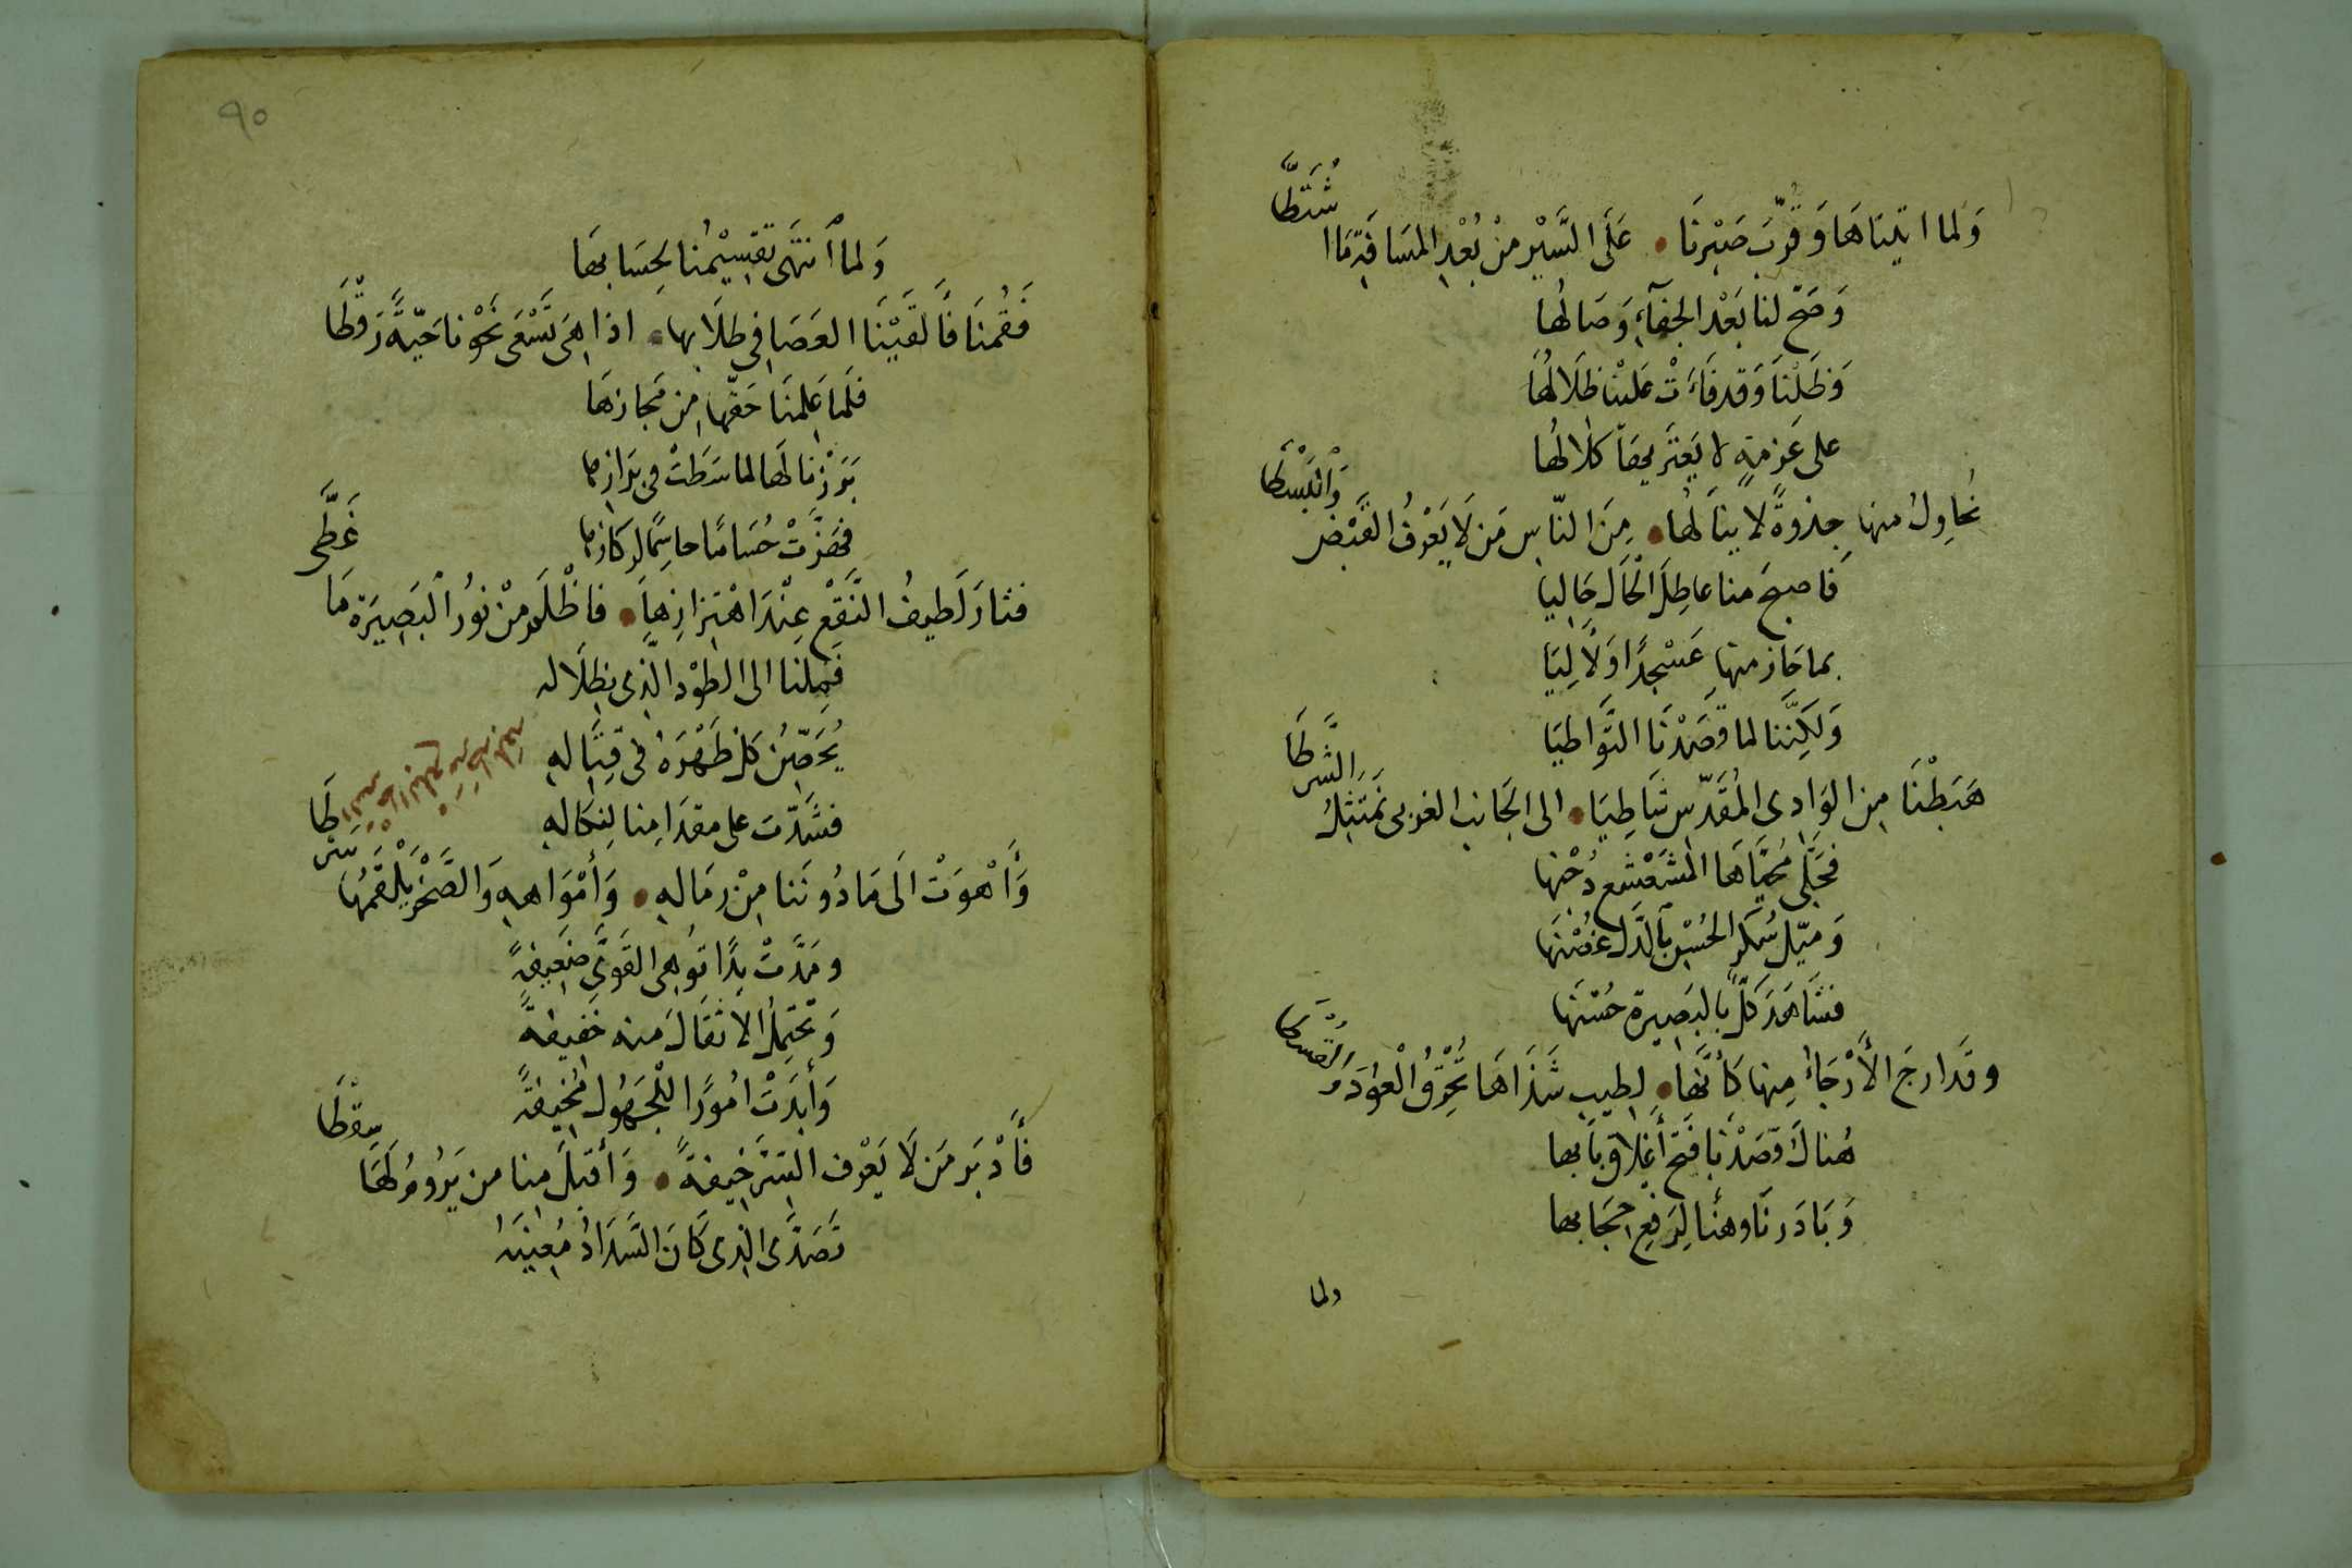 وَلما اتَيناهَا وَقَرَّبَ صَبْرنَا • عَلَى السَّيْرِ مِنْ بُعْدِ المسَافَةِ مَا اشْتَطَّا
وَصَحَّ لنا بَعْدَ الجفآءِ وَصَالُها
وَظَلْنَا وَقد فَاءَتْ عَليْنا ظِلَالُهَا
على عَزمَةٍ لا يَعْتَرِيهَا كلالُها
نُحَاوِلُ منها جذوَةً لا ينالُها • مِنَ النّاسِ مَن لَا يَعْرفُ القَبْضَ وَالبَسْطَا
فَاصبحَ منا عاطِلُ الحَالِ حَاليا
بما حَازَ منها عَسْجدًا وَلآلِيَا
وَلكنَّنا لما قَصَدْنَا التَّوَاطيَا
هَبَطْنَا مِن الوَادِى المُقَدَّسِ شَاطِيَا • الى الجَانبِ الغربى نَمْتَثِلُ الشَّرطَا
فجَلَّى مُحَيَّاهَا المشَعْشعِ دُجْنَها
وَميّل سُكْر الحُسْنِ بالدَّلِ غصْنَهَا
فشَاهَدَ كلٌّ بالبَصِيرةِ حُسْنَها
وقَد ارجَ الأرْجَاءُ مِنها كَأنَّهَا • لِطِيبِ شَذَاهَا تُحْرِقُ الْعُودَ وَالقُسْطَا
هُناكَ قصَدْنَا فَتْحَ أَغلاقِ بَابها
وَبَادَرنَا وهنًا لِرَفعِ حِجَابها
ولما
٩٠
وَلما انتَهَى تقسِيْمُنا لِحسَابهَا
فَقُمنَا فَألقَيْنَا العَصَا فِي طلَابِها • اذا هِيَ تَسْعَى نَحْونا حَيّةً رَقْطَا
فلَما عَلِمنَا حَقَّها مِن مَجازهَا
بَرَزْنا لَهَا لما سَطَتْ فى برَازِها
فهَزَّتْ حُسَامًا حاسِمًا لركَازها
فثارَ لَطيفُ النَّقعِ عِنْدَ اهْتِزازِهَا • فاظْلَمَ مِنْ نُورِ البَصِيَرةِ مَا غَطَّى
فَمِلنا الى الطَوْدِ الّذِى بظِلَالهِ
يُحَصِّنُ كلٌ ظَهْرَهُ فى قِتَالهِ
فشَدَّت على مقدَامِنا لِنكَالهِ
وَأَهْوَتْ الَى مَا دُونَنا مِنْ رِمَالهِ • وَأَمْوَاههِ وَالصَّخْرِ يَلْقَمُها سَرطَا
ومَدَّتْ يدًا تُوهِى القَوَىَّ ضَعِيفةً
وَتحْتَمِلُ الاثقَالَ منه خَفيفةً
وَأَبدَتْ امُورًا للْجَهُولِ مُخيفةً
فَأَدْبَر مَن لَا يَعْرف السّرَ خِيفةً • وَأقبَلَ مِنا من يَرُومُ لَهَا سِقْطَا
تَصَدَّى الذى كَانَ السَّدَادُ مُعِينَهُ